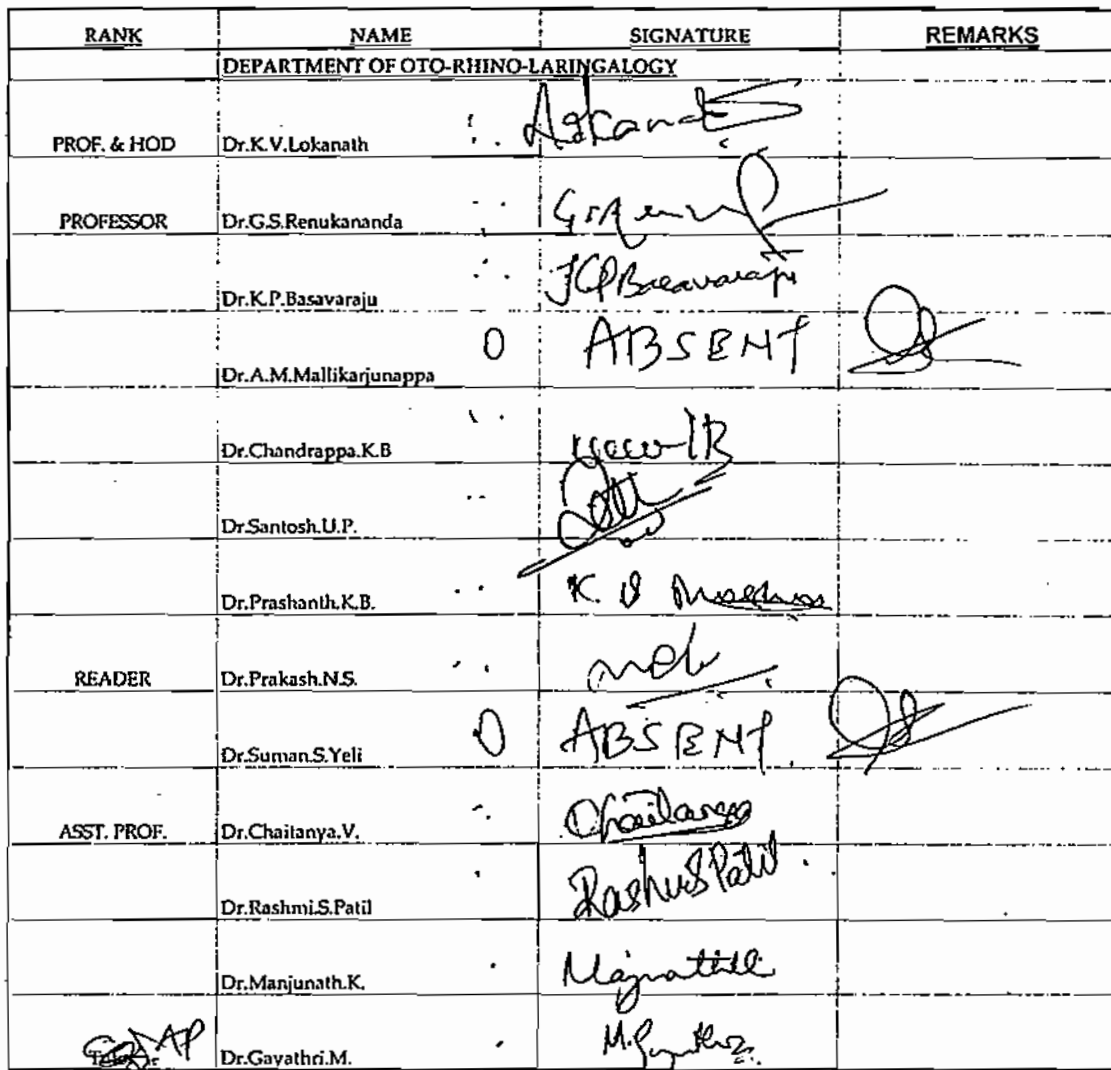 RANK NAME SIGNATURE REMARKS
DEPARTMENT OF OTO-RHINO-LARINGALOGY
PROF. & HOD Dr.K.V.Lokanath
PROFESSOR Dr.G.S.Renukananda
Dr.K.P.Basavaraju KPBasavaraju
Dr.A.M.Mallikarjunappa 0 ABSENT
Dr.Chandrappa.K.B
Dr.Santosh.U.P.
Dr.Prashanth.K.B. K. B
READER Dr.Prakash.N.S.
Dr.Suman.S.Yeli 0 ABSENT
ASST. PROF. Dr.Chaitanya.V. Chaitanya
Dr.Rashmi.S.Patil Rashmi S Patil
Dr.Manjunath.K.
AP Dr.Gayathri.M. M. Gayathri